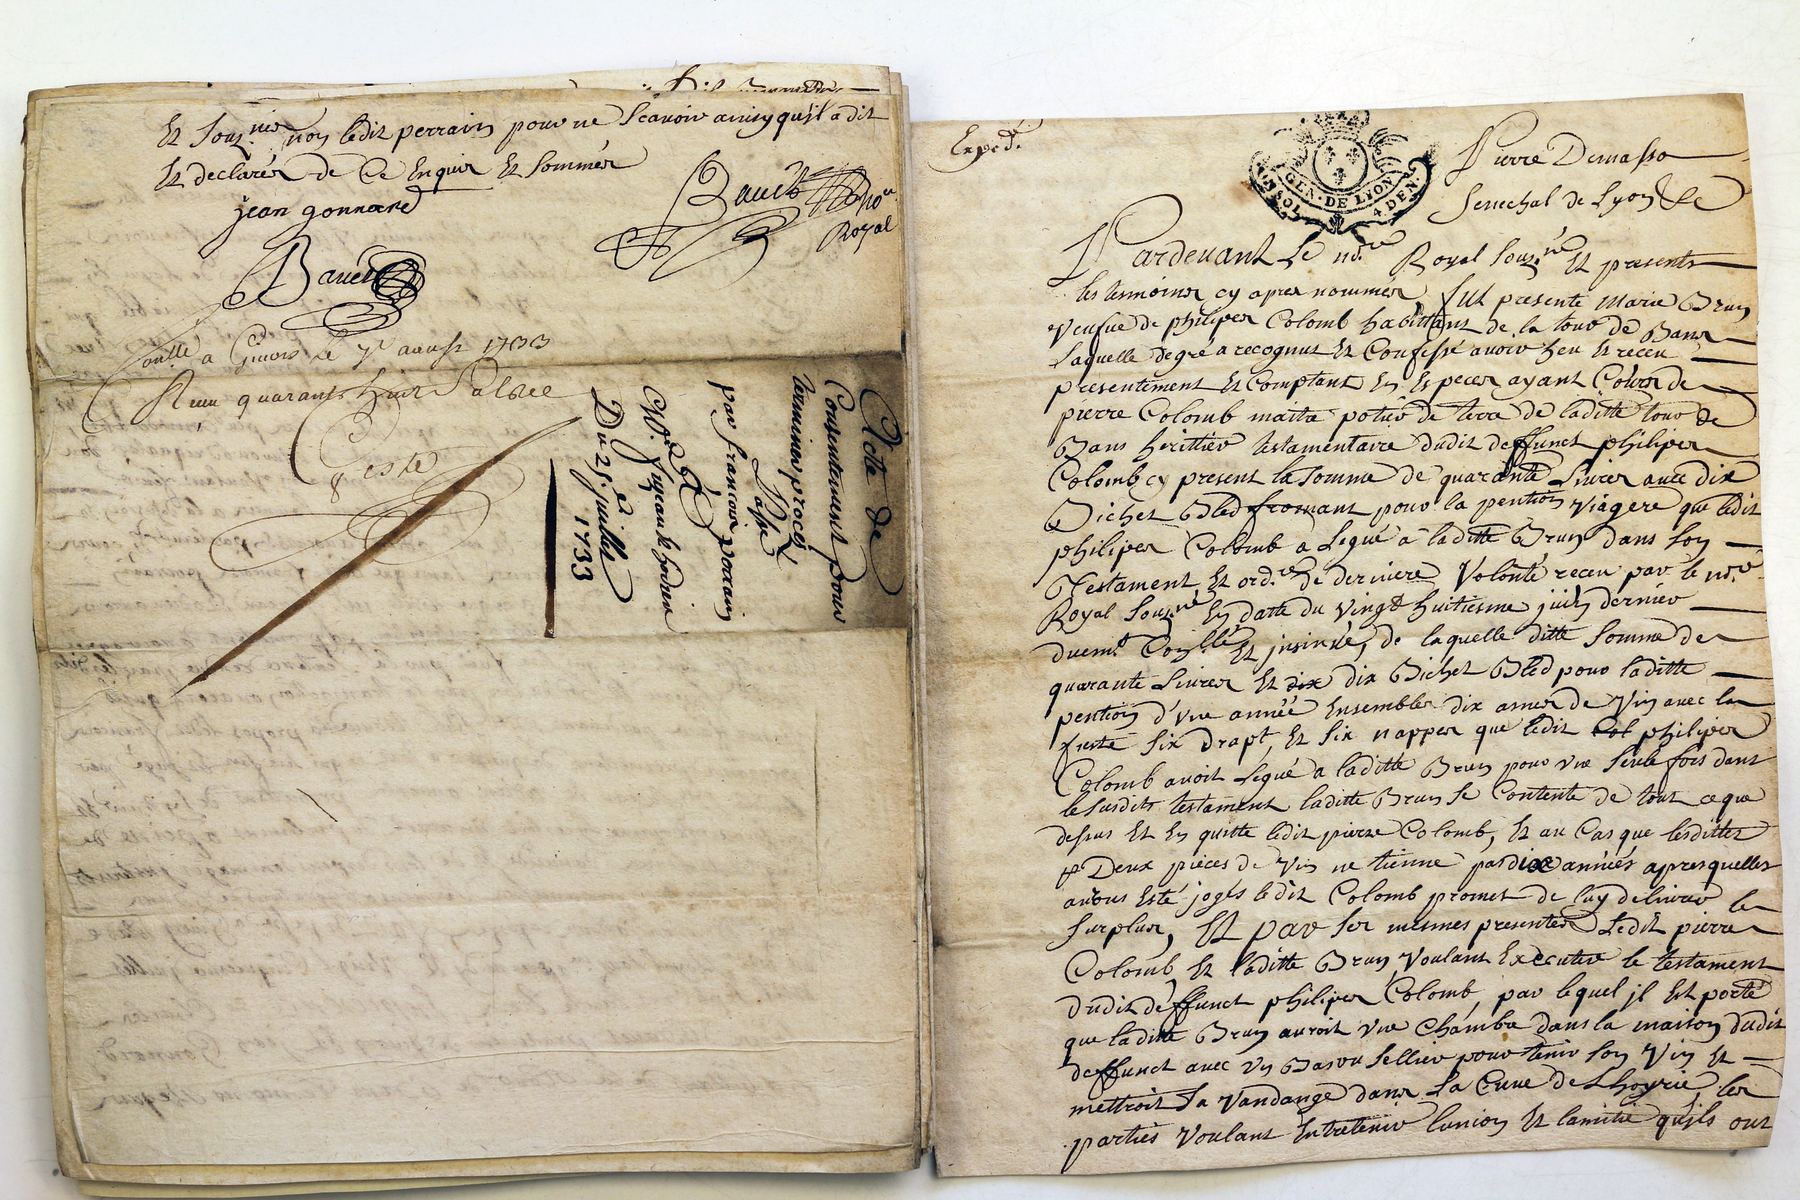 Et Souz.né non ledit perrain pour ne Scavoir ainsy qu'il a dit
Et declarer de Ce Enquis Et Sommer
jean gonnard
Bauet No.re
Royal
Bauet
a Givors le 7e aoust 1733
Reçu quarante huit Sols
Geste
Acte de
Consentement pour
terminer procez
Passé
par francois perrain
Du 25e juillet
1733
Exped.é
GEN. DE LYON
UN SOL 4. DEN.
Pierre Demasso
Senechal de Lyon &e
Pardevant Le no.re Royal Souz.né Et presents
les tesmoins cy apres nommés, fut presente Marie Brun
Veufue de philipes Colomb habittant de la tour de Bans
Laquelle de gré a recognut Et Confessé avoir heu Et receu
presentement Et Comptant En Especes ayant Cours de
pierre Colomb maitre potier de terre de laditte tour de
Bans herittier testamentaire dudit deffunct philipes
Colomb cy present la Somme de quarante Livres avec dix
Bichet Bled fromant pour la pention Viagere que ledit
philipes Colomb a Legué à laditte Brun dans Son
Testament Et ord.ce de derniere Volonté receu par le no.re
Royal Souz.né En datte du Vingt huitiesme juin dernier
duem.t Con.llé Et insinué, de laquelle ditte Somme de
quarante Livres Et dix dix Bichet Bled pour laditte
pention d'vne année Ensembles dix asnes de Vin avec la
fuste Six drapt, Et Six nappes que ledit Col philipes
Colomb avoit Legué a laditte Brun pour vne Seule fois dans
le Susdits testament laditte Brun Se Contente de tout ce que
dessus Et En quitte ledit pierre Colomb, Et au Cas que lesdittes
Deux pieces de Vin ne tienne pas dix années apres quelles
auront Esté jogés ledit Colomb promet de luy delivrer le
Surplus, Et par Ses mesmes presentes Ledit pierre
Colomb Et laditte Brun Voulant Executer le testament
dudit deffunct philipes Colomb, par lequel il Est porté
que laditte Brun auroit vne Chambre dans la maison dudit
deffunct avec Vn Bas ou Sellier pour tenir Son Vin Et
mettroit Sa Vandange dans La Cuve de L'hoyrie, les
parties Voulant Entretenir l'union Et lamitié qu'ils ont